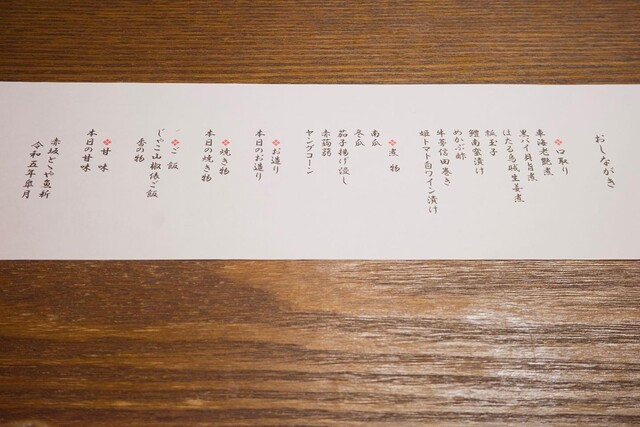 おしながき
口取り
車海老艶煮
黒バイ貝旨煮
ほたる烏賊生姜煮
紙玉子
鱧南蛮漬け
めかぶ酢
牛蒡信田巻き
姫トマト白ワイン漬け
煮物
南瓜
冬瓜
茄子揚げ浸し
赤蒟蒻
ヤングコーン
お造り
本日のお造り
焼き物
本日の焼き物
ご飯
じゃこ山椒俵ご飯
香の物
甘味
本日の甘味
赤坂ときや
令和五年皐月